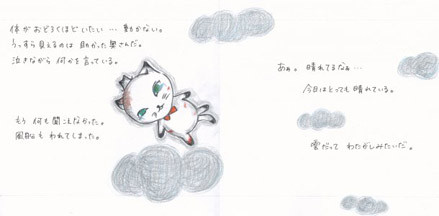 体がおどろくほどいたい … 動かない。
うっすら見えるのは 助かった奥さんだ。
泣きながら 何かを言っている。
もう 何も聞こえなかった。
風船も われてしまった。
あぁ。 晴れてるなぁ…
今日はとっても 晴れている。
雲だって わたがしみたいだ。